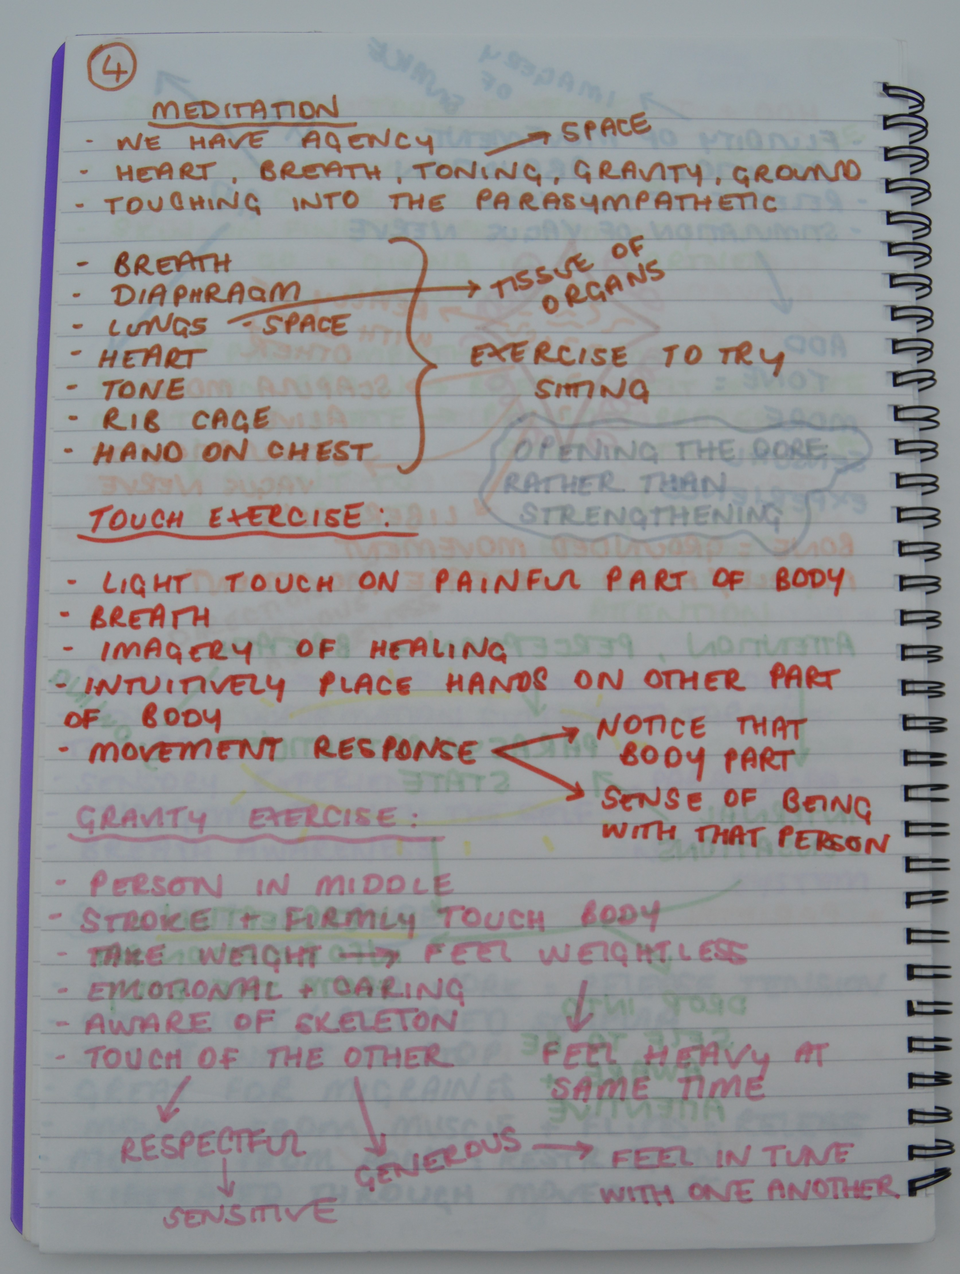 4
MEDITATION
- WE HAVE AGENCY → SPACE
- HEART, BREATH, TONING, GRAVITY, GROUND
- TOUCHING INTO THE PARASYMPATHETIC
- BREATH
- DIAPHRAGM
- LUNGS - SPACE → TISSUE OF
ORGANS
- HEART
- TONE
- RIB CAGE
- HAND ON CHEST
EXERCISE TO TRY
SITTING
OPENING THE CORE
RATHER THAN
STRENGTHENING
TOUCH EXERCISE:
- LIGHT TOUCH ON PAINFUL PART OF BODY
- BREATH
- IMAGERY OF HEALING
- INTUITIVELY PLACE HANDS ON OTHER PART
OF BODY
- MOVEMENT RESPONSE
NOTICE THAT
BODY PART
SENSE OF BEING
WITH THAT PERSON
GRAVITY EXERCISE:
- PERSON IN MIDDLE
- STROKE + FIRMLY TOUCH BODY
- TAKE WEIGHT → FEEL WEIGHTLESS
- EMOTIONAL + CARING
- AWARE OF SKELETON
- TOUCH OF THE OTHER
FEEL HEAVY AT
SAME TIME
RESPECTFUL
SENSITIVE
GENEROUS → FEEL IN TUNE
WITH ONE ANOTHER